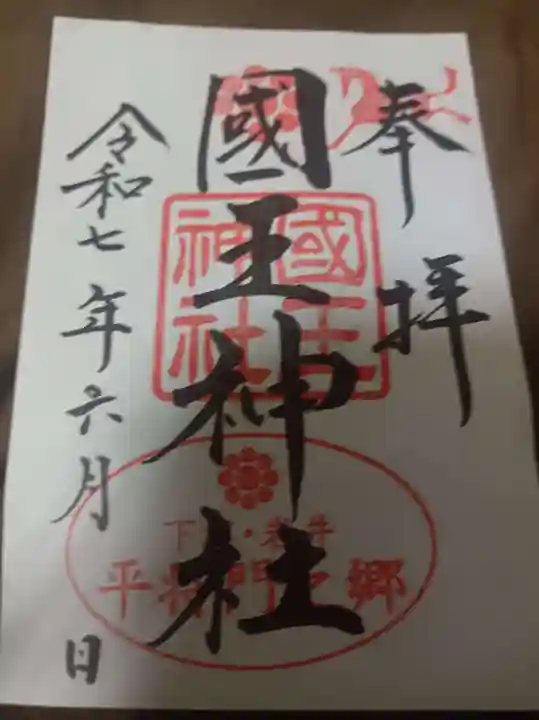 奉拝
國王神社
令和七年六月 日
國王神社
下総・岩井
平将門之郷